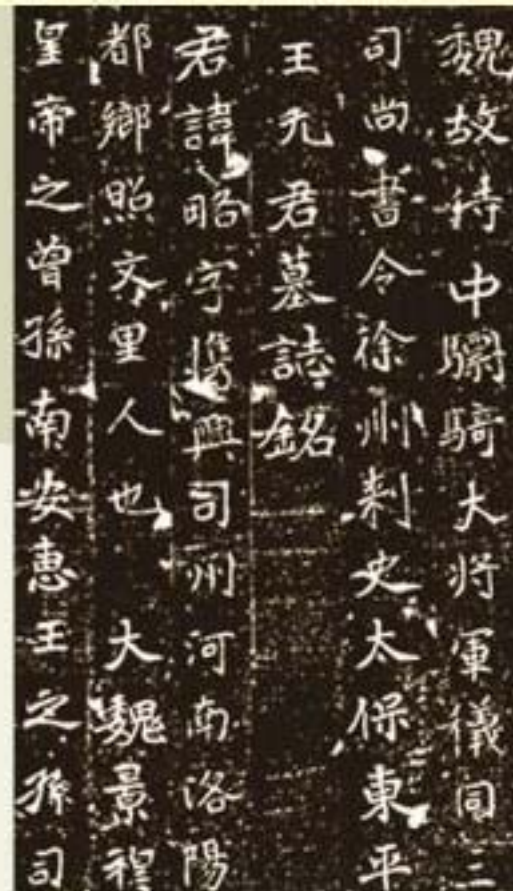 魏故侍中驃騎大將軍儀同三
司尚書令徐州刾史太保東平
王元君墓誌銘
君諱昭字㒞興司州河南洛陽
都鄉照文里人也　大魏景穆
皇帝之曾孫南安惠王之孫司